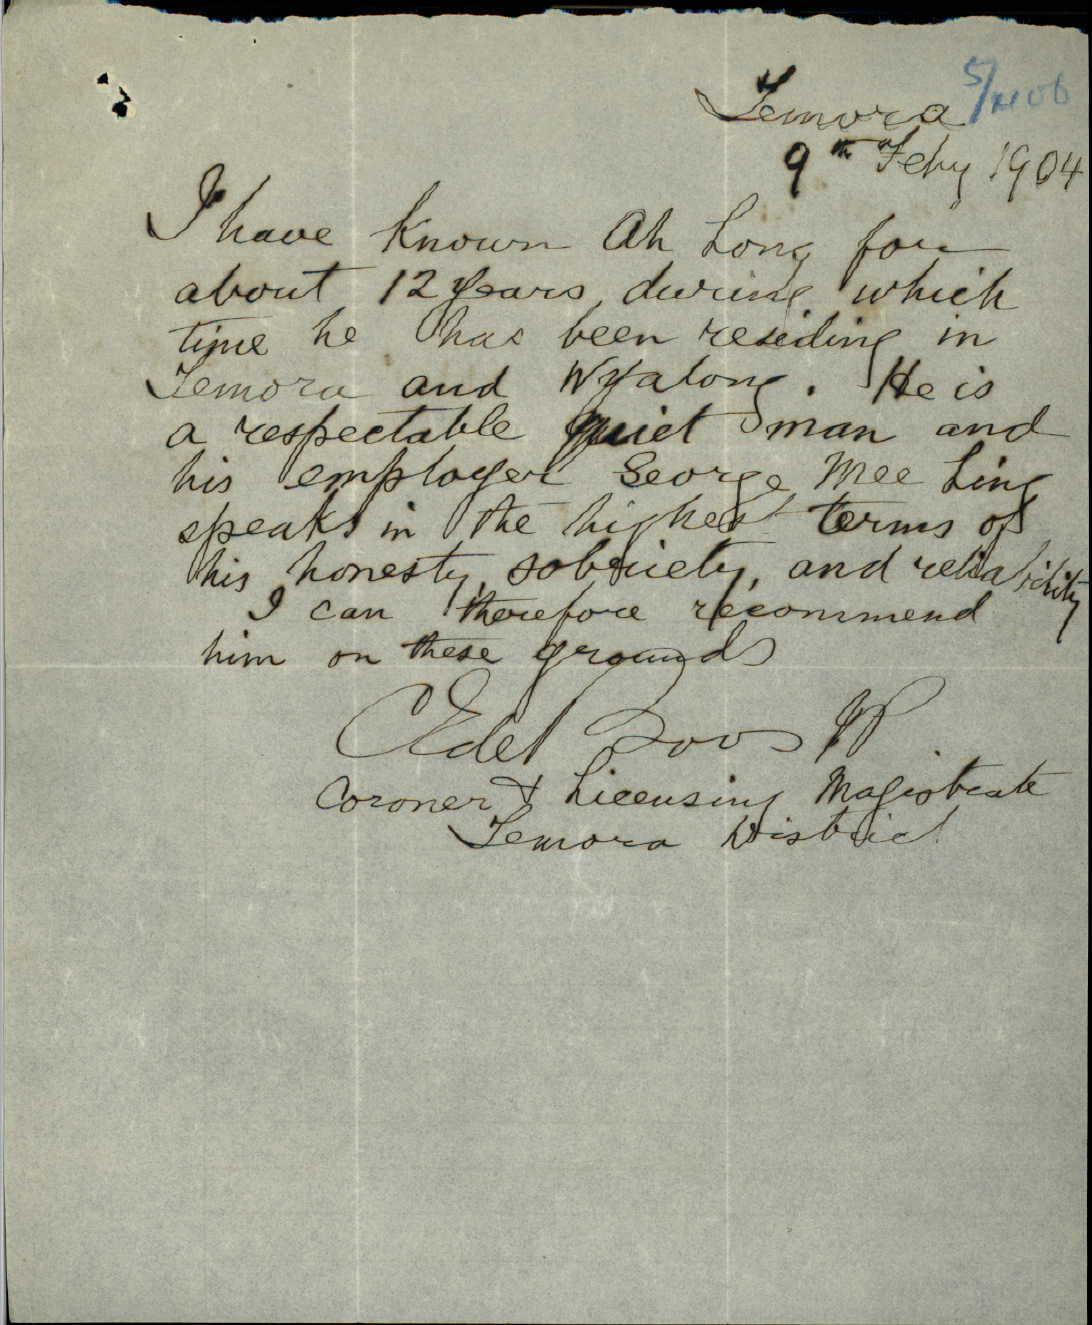 Temora
9th Feby 1904
I have Known Ah Long for
about 12 years, during which
time he has been residing in
Temora and Wyalong. He is
a respectable quiet man and
his employer George Mee Ling
speaks in the highest terms of
his honesty, sobriety, and reliability
I can therefore recommend
him on these grounds
JP
Coroner & Licensing Magistrate
Temora District